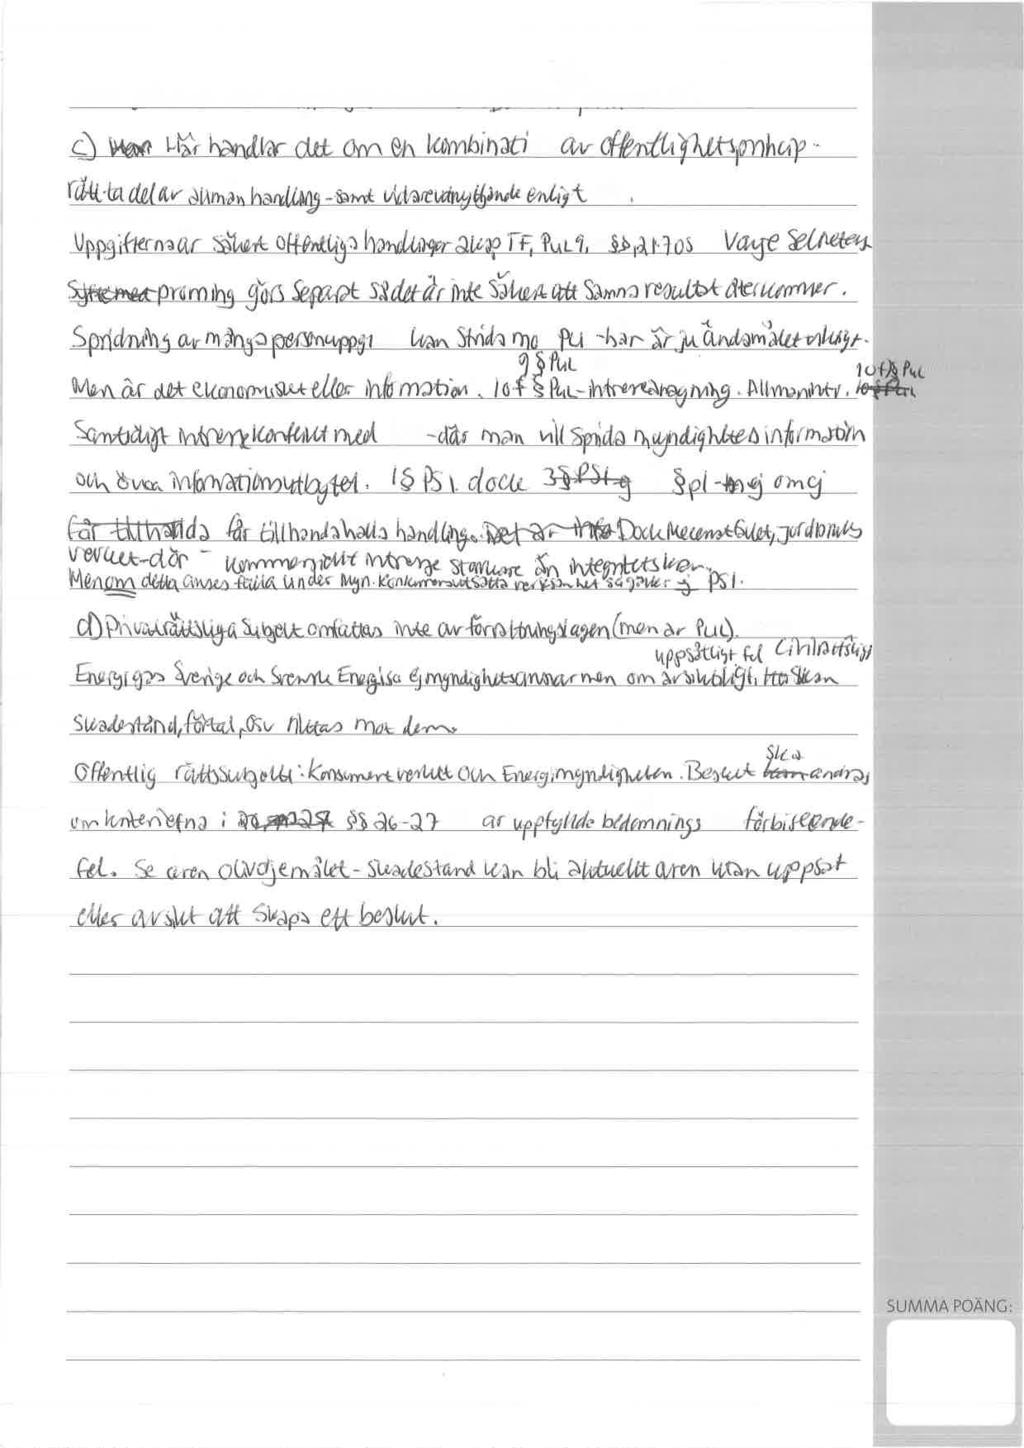 c) Här handlar det om en kombinati av offentlighetsprincip-
rätt ta del av allmän handling - samt vidareutnyttjande enligt
Uppgifterna är säkert offentliga handlingar 2 kap TF, PuL 9, §§, 21:7 OS Varje sekretess
prövning görs separat så det är inte säkert att samma resultat återkommer.
Spridning av många personuppgi kan strida mo - här är ju ändamålet viktigt.
9 § PuL
10 f § PuL
Men är det ekonomiskt eller information. 10 f § PuL - intresseavägning. Allmänintr.
Samtidigt intressekonflikt med - där man vill sprida myndighetes information
och öka informationsutbytet. 1 § PSI. dock § ej omej
får tillhandahålla handling. Dock Mecenatfallet, jordbruks
verket - där - kommersiellt intresse starkare än integritetskr.
Men om detta anses falla under Myn. konkurrensutsatta verksamhet så gäller ej PSI.
d) Privaträttsliga subjekt omfattas inte av förvaltningslagen (men av PuL).
uppsåtligt fel Civilrättsligt
Energigas Sverige och Svensk Energi ej myndighetsansvar men om avsiktligt, kan
skadestånd, förtal, osv riktas mot dem.
Offentlig rättssubjekt: Konsumentverket och Energimyndigheten. Beslut ska ändras
om kriterierna i §§ 26-27 är uppfyllda bedömnings förbiseende-
fel. Se även oljvdjemålet - skadestånd kan bli aktuellt även utan uppsåt
eller avsikt att skapa ett beslut.
SUMMA POÄNG: